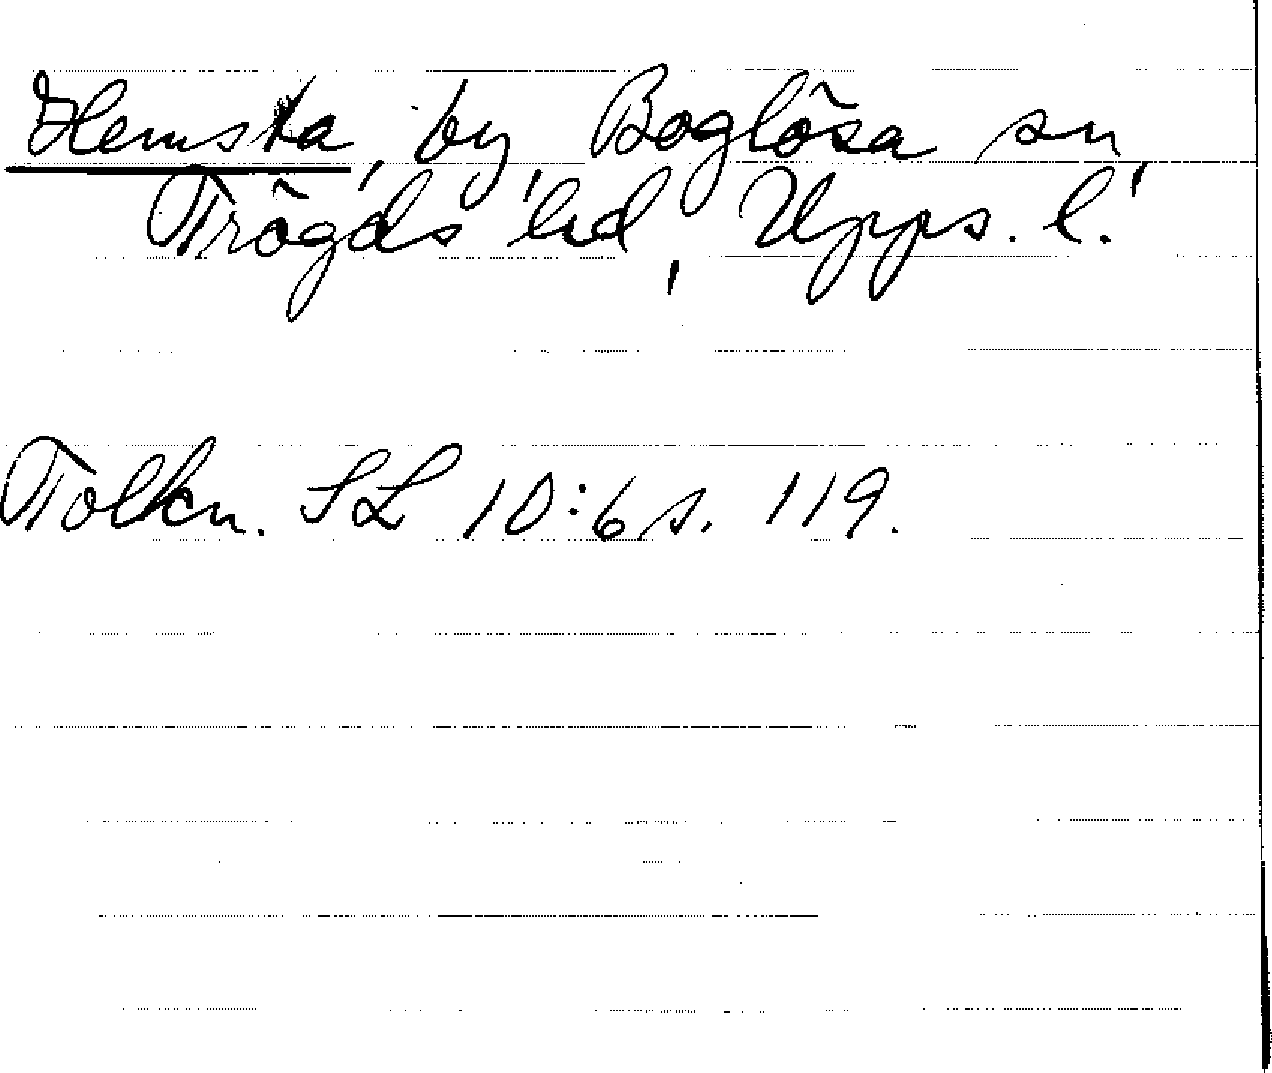 Hemsta, by, Boglösa sn,
Trögds hd, Upps. l.
Tolkn. SL 10:6 s. 119.